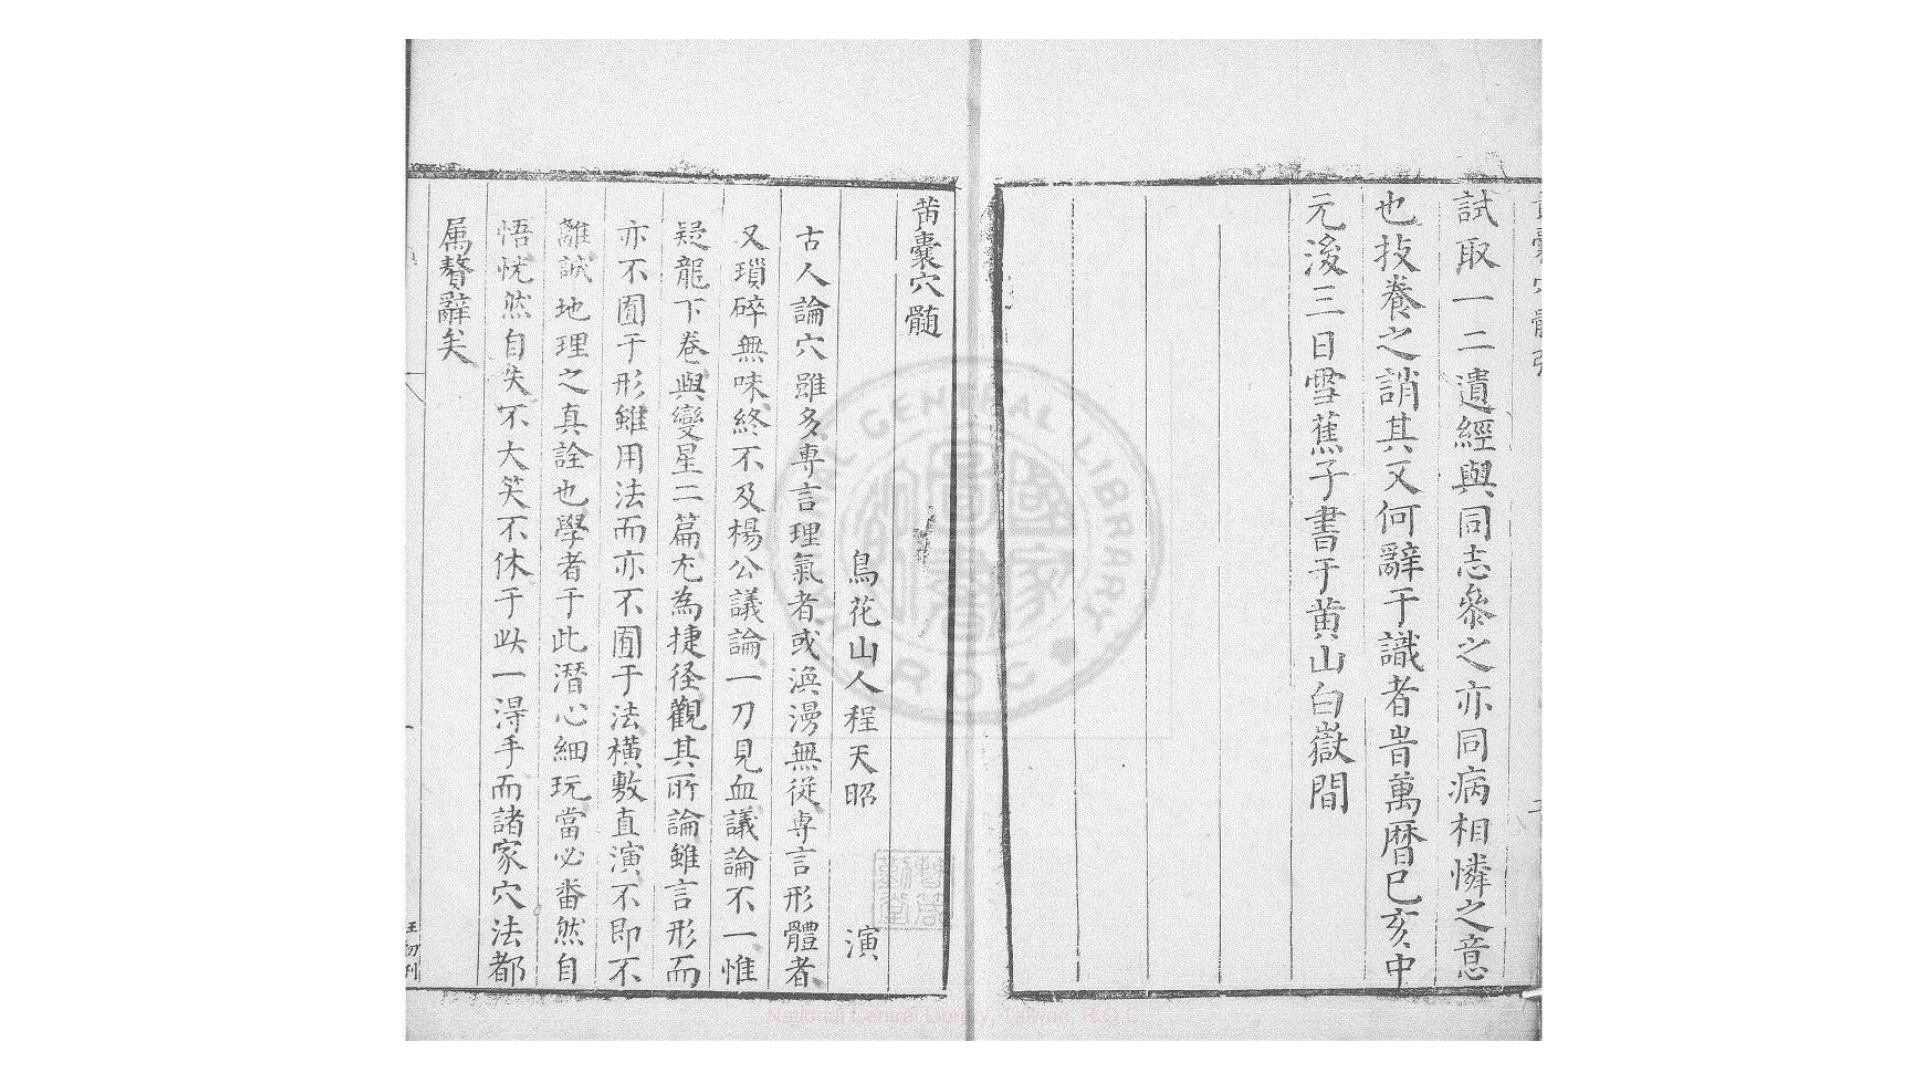 試取一二遺經與同志叅之亦同病相憐之意
也技養之誚其又何辭于識者旹萬曆巳亥中
元後三日雪蕉子書于黄山白嶽間
黄囊穴髓
鳥花山人程天昭 演
古人論穴雖多專言理氣者或渙漫無從專言形體者
又瑣碎無味終不及楊公議論一刀見血議論不一惟
疑龍下卷與變星二篇尤為捷径觀其所論雖言形而
亦不囿于形雖用法而亦不囿于法橫敷直演不即不
離誠地理之真詮也學者于此潛心細玩當必畨然自
悟恍然自失不大笑不休于此一得手而諸家穴法都
属贅辭矣
NATIONAL CENTRAL LIBRARY R O C
國家圖書館
National Central Library, Taiwan, R.O.C